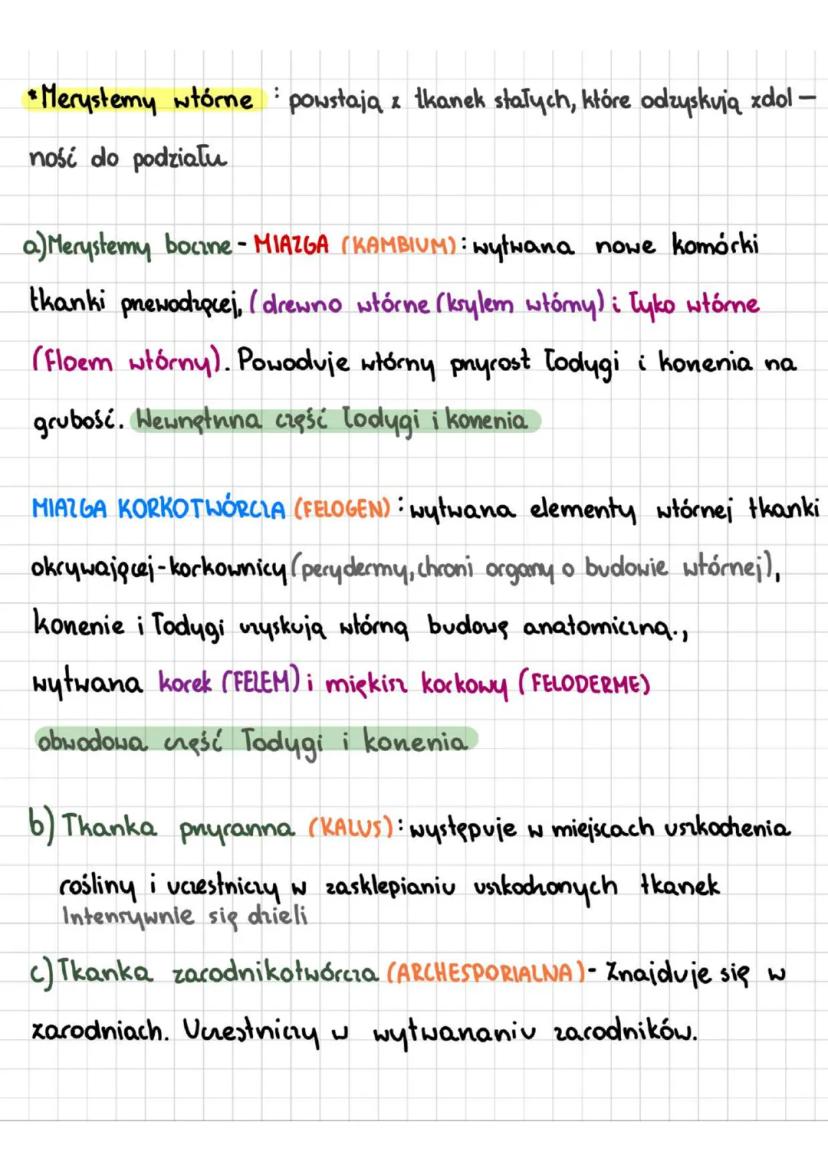 *Merystemy wtórne : powstają z tkanek stałych, które odzyskują zdol-
ność do podziału
a) Merystemy boczne - MIAZGA (KAMBIUM): wytwarza nowe komórki
tkanki przewodzącej, (drewno wtórne (ksylem wtórny) i łyko wtórne
(floem wtórny). Powoduje wtórny przyrost łodygi i korzenia na
grubość. Wewnętrzna część łodygi i korzenia
MIAZGA KORKOTWÓRCZA (FELOGEN): wytwarza elementy wtórnej tkanki
okrywającej-korkownicy (perydermy, chroni organy o budowie wtórnej),
korzenie i łodygi uzyskują wtórną budowę anatomiczną.,
wytwarza korek (FELEM) i miękisz korkowy (FELODERMĘ)
obwodowa część łodygi i korzenia
b) Tkanka przyranna (KALUS): występuje w miejscach uszkodzenia
rośliny i uczestniczy w zasklepianiu uszkodzonych tkanek
Intensywnie się dzieli
c) Tkanka zarodnikotwórcza (ARCHESPORIALNA)- Znajduje się w
zarodniach. Uczestniczy w wytwarzaniu zarodników.